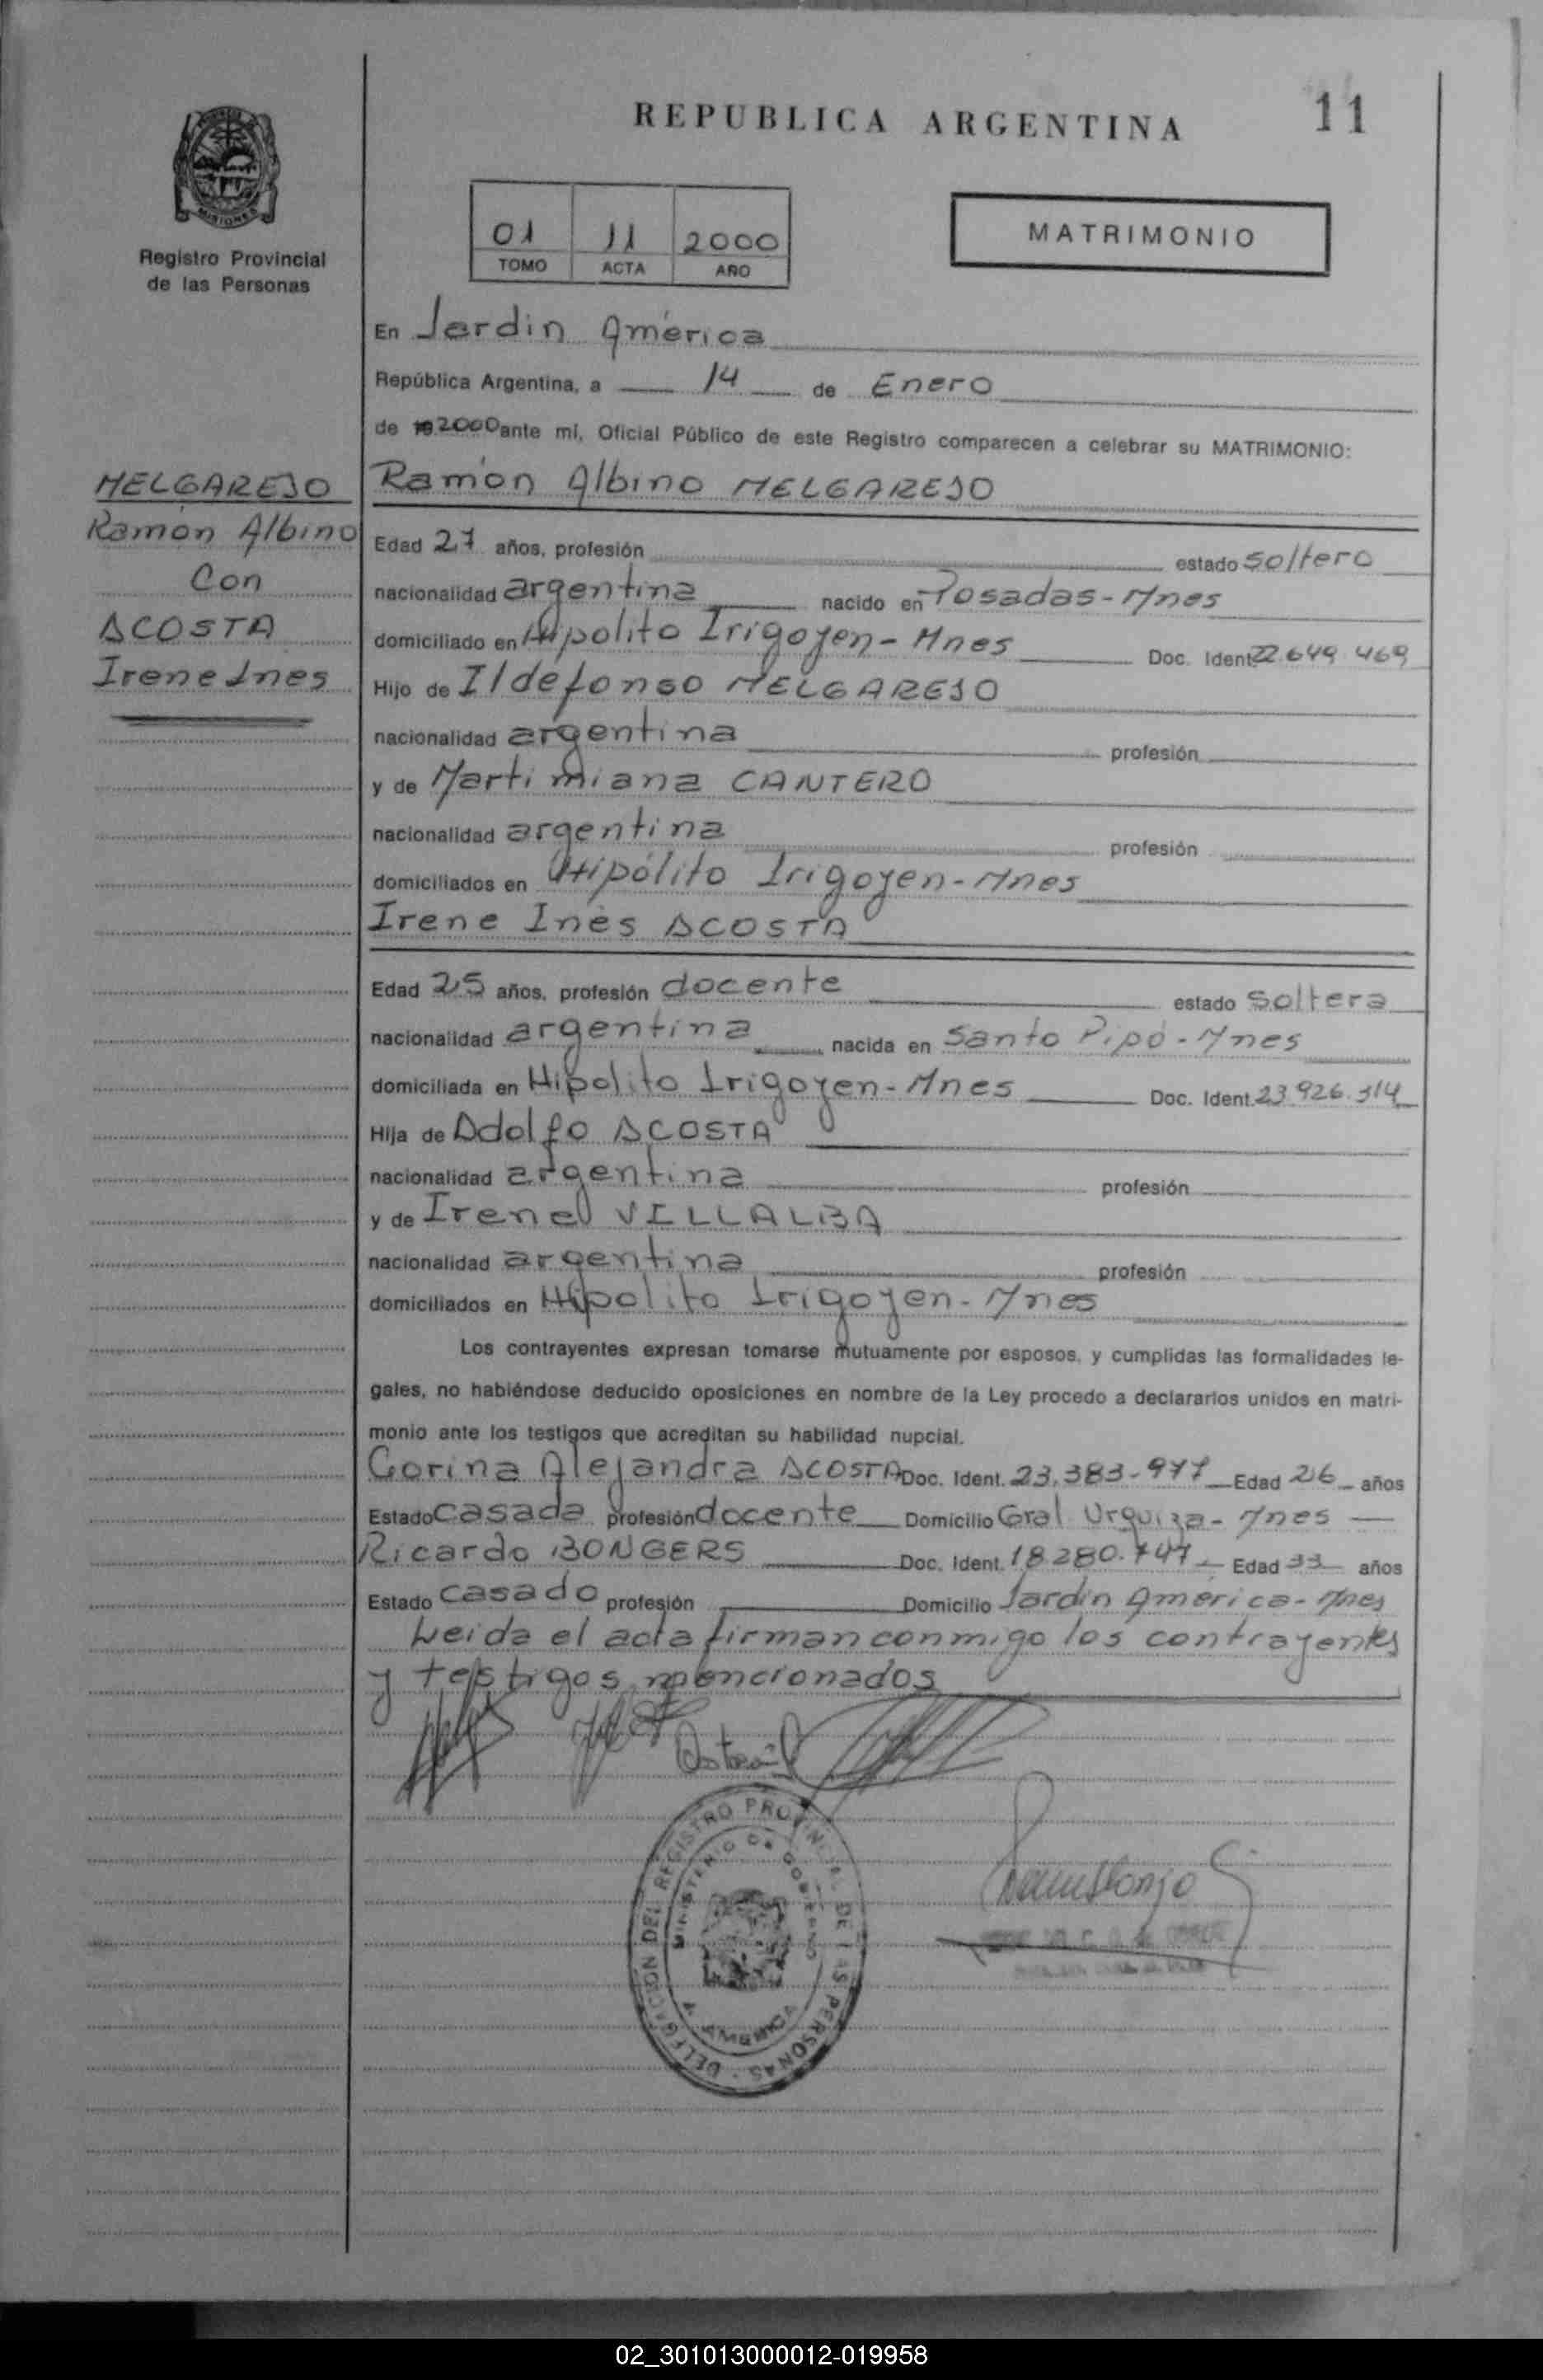 REPUBLICA ARGENTINA
11
MISIONES
Registro Provincial
de las Personas
01 11 2000
TOMO ACTA AÑO
MATRIMONIO
En Jardin América
República Argentina, a 14 de Enero
de 19 2000 ante mí, Oficial Público de este Registro comparecen a celebrar su MATRIMONIO:
MELGAREJO
Ramón Albino
Con
ACOSTA
Irene Ines
Ramón Albino MELGAREJO
Edad 27 años, profesión estado soltero
nacionalidad argentina nacido en Posadas-Mnes
domiciliado en Hipolito Irigoyen-Mnes Doc. Ident. 22.649.469
Hijo de Ildefonso MELGAREJO
nacionalidad argentina profesión
y de Martimiana CANTERO
nacionalidad argentina profesión
domiciliados en Hipólito Irigoyen-Mnes
Irene Inés ACOSTA
Edad 25 años, profesión docente estado soltera
nacionalidad argentina nacida en Santo Pipó-Mnes
domiciliada en Hipolito Irigoyen-Mnes Doc. Ident. 23.926.314
Hija de Adolfo ACOSTA
nacionalidad argentina profesión
y de Irene VILLALBA
nacionalidad argentina profesión
domiciliados en Hipolito Irigoyen-Mnes
Los contrayentes expresan tomarse mutuamente por esposos, y cumplidas las formalidades le-
gales, no habiéndose deducido oposiciones en nombre de la Ley procedo a declararlos unidos en matri-
monio ante los testigos que acreditan su habilidad nupcial.
Corina Alejandra ACOSTA Doc. Ident. 23.383.977 Edad 26 años
Estado casada profesión docente Domicilio Gral Urquiza-Mnes
Ricardo BONGERS Doc. Ident. 18.280.747 Edad 33 años
Estado casado profesión Domicilio Jardín América-Mnes
Leida el acta firman conmigo los contrayentes
y testigos mencionados
DELEGACION DEL REGISTRO PROVINCIAL DE LAS PERSONAS
MINISTERIO DE GOBIERNO
AMERICA
02_301013000012-019958